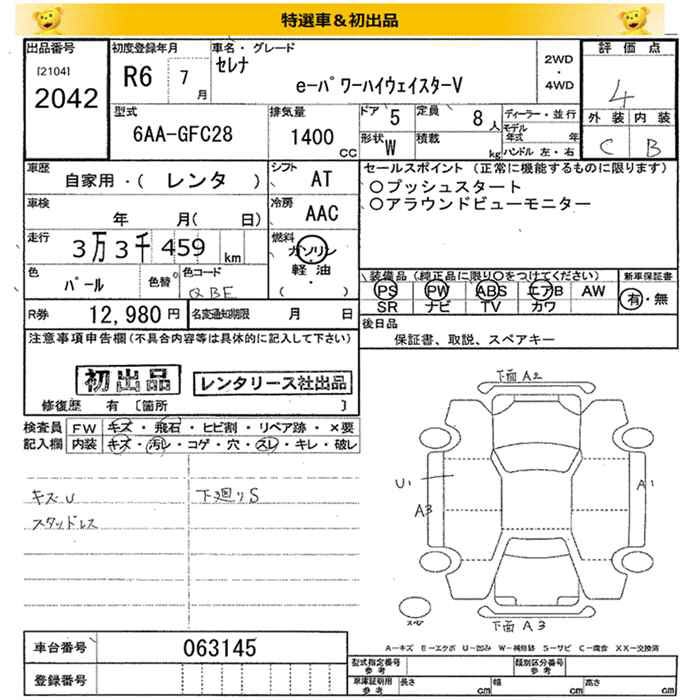 特選車＆初出品
出品番号 [2104] 2042
初度登録年月 R6 7月
車名・グレード セレナ
e-パワーハイウェイスターV
2WD・4WD
評価点 4
外装 内装
C B
型式 6AA-GFC28
排気量 1400 CC
ドア 5
定員 8人
形状 W
積載 kg
ディーラー・並行
モデル年式 年
ハンドル 左・右
車歴 自家用・( レンタ )
シフト AT
車検 年 月( 日)
冷房 AAC
走行 3万3千459 km
燃料 ガソリン・軽油・( )
色 パール 色替
色コード QBE
セールスポイント (正常に機能するものに限ります)
○プッシュスタート
○アラウンドビューモニター
装備品(純正品に限り○をつけてください) 新車保証書
PS PW ABS エアB AW 有・無
SR ナビ TV カワ
R券 12,980円
名変通知期限 月 日
後日品
保証書、取説、スペアキー
注意事項申告欄(不具合内容等は具体的に記入して下さい)
初出品 レンタリース社出品
修復歴 有 [箇所 ]
検査員記入欄
FW キズ・飛石・ヒビ割・リペア跡・×要
内装 キズ・汚レ・コゲ・穴・スレ・キレ・破レ
キズU 下廻りS
スタッドレス
下面A2
U1 A1
A3
スペア
下面A3
A－キズ E－エクボ U－凹み W－補修跡 S－サビ C－腐食 XX－交換済
車台番号 063145
登録番号
型式指定番号 参考
類別区分番号 参考
車庫証明用 参考 長さ cm 幅 cm 高さ cm